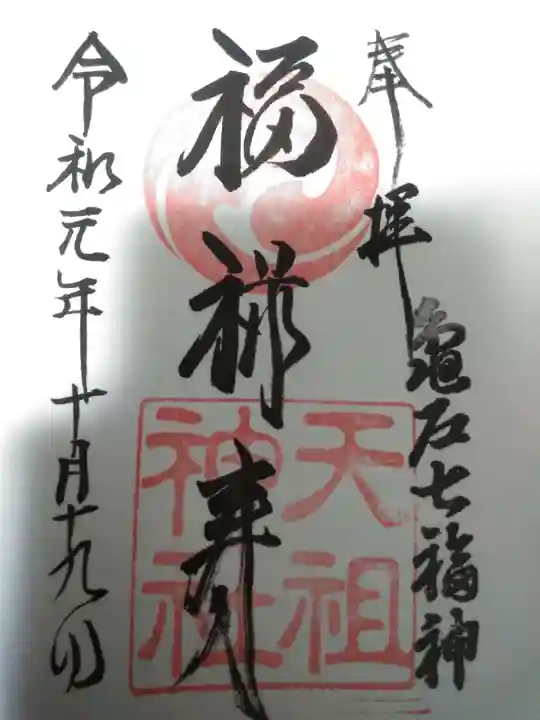 奉拝
亀戸七福神
福禄寿
天祖
神社
令和元年十月十九日